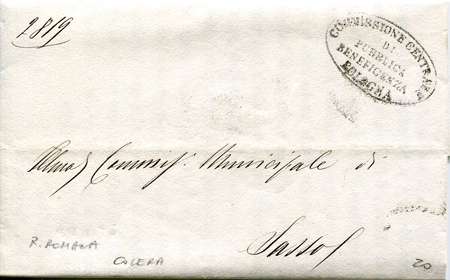 2819
COMMISSIONE CENTRALE
DI
PUBBLICA
BENEFICENZA
BOLOGNA
Commiss. Municipale di
Sasso
R. ROMANA
COLERA
20